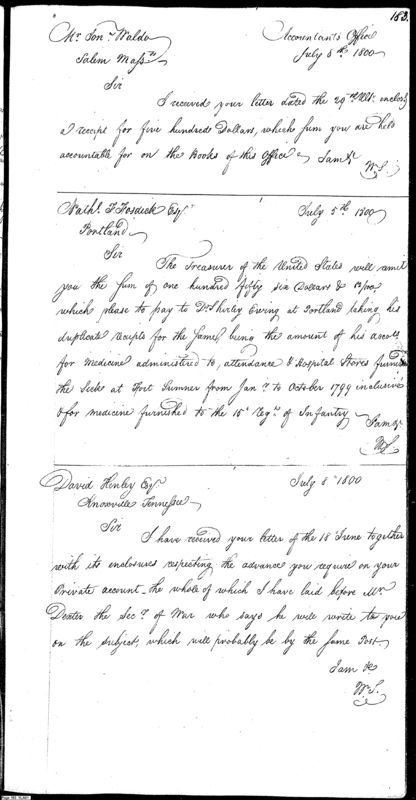 183.
Mr. Jonn. Waldo
Accountants Office
Salem Masstts
July 8th. 1800
Sir
I received your letter dated the 29th Ult. enclosg
a receipt for five hundred Dollars, which sum you are held
accountable for on the Books of this Office. I am &c
W.S.
Nathl. F. Fosdick Esqr.
July 5th. 1800
Portland
Sir
The Treasurer of the United States will remit
you the sum of one hundred fifty six Dollars &
which please to pay to Dr. Shirley Erving at Portland taking his
duplicate receipts for the same, being the amount of his accots
for medicine administered to, attendance & Hospital Stores furnished
the Sick at Fort Sumner from Jany. to October 1799 inclusive
& for medicine furnished to the 15th Regt. of Infantry
I am &c
W.S.
David Henley Esqr.
July 8th 1800
Knoxville Tennessee
Sir
I have received your letter of the 18 June together
with its enclosures respecting the advance you require on your
Private account the whole of which I have laid before Mr
Dexter the Secy. of War who says he will write to you
on the subject, which will probably be by the same Post
I am &c
W.S.